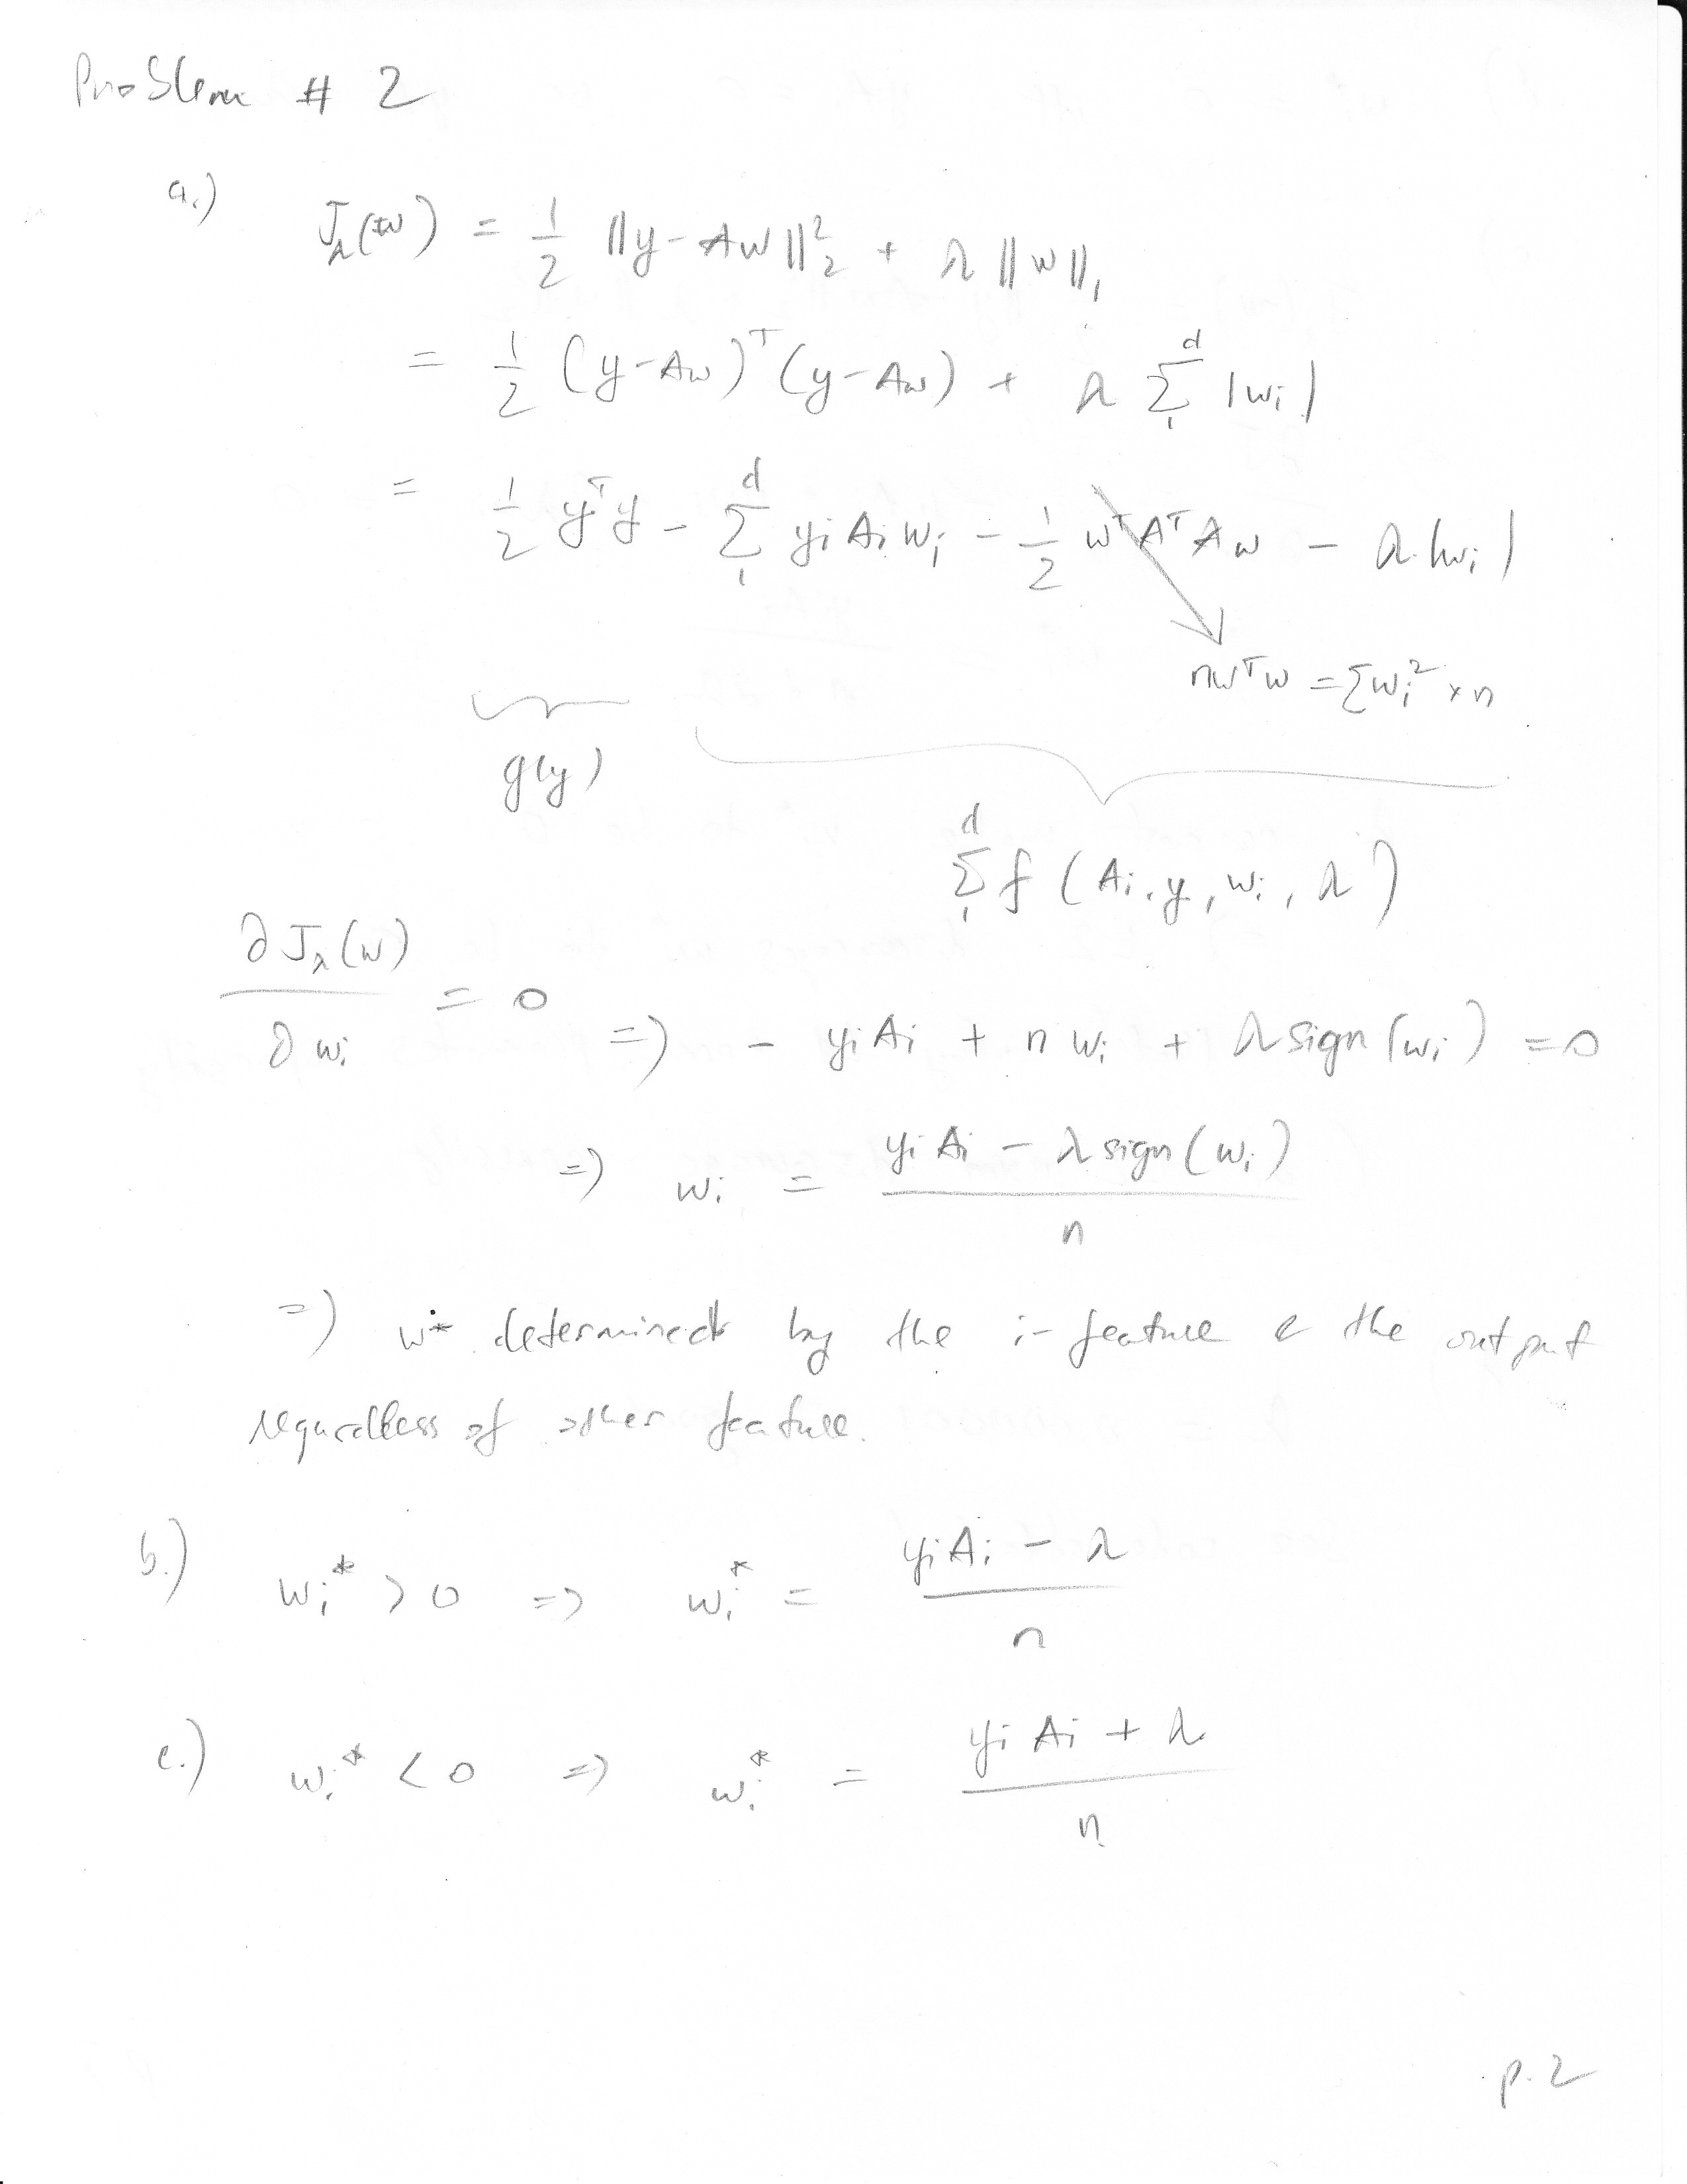 Problem # 2
a.)
J_λ(w) = 1/2 ||y - Aw||_2^2 + λ ||w||_1
= 1/2 (y - Aw)^T (y - Aw) + λ Σ_1^d |w_i|
= 1/2 y^T y - Σ_1^d y_i A_i w_i - 1/2 w^T A^T A w - λ |w_i|
n w^T w = Σ w_i^2 × n
g(y)
Σ_1^d f (A_i, y, w_i, λ)
∂J_λ(w) / ∂w_i = 0 => - y_i A_i + n w_i + λ sign(w_i) = 0
=> w_i = (y_i A_i - λ sign(w_i)) / n
=> w_i* determined by the i- feature & the output
regardless of other feature.
b.) w_i* > 0 => w_i* = (y_i A_i - λ) / n
c.) w_i* < 0 => w_i* = (y_i A_i + λ) / n
p. 2